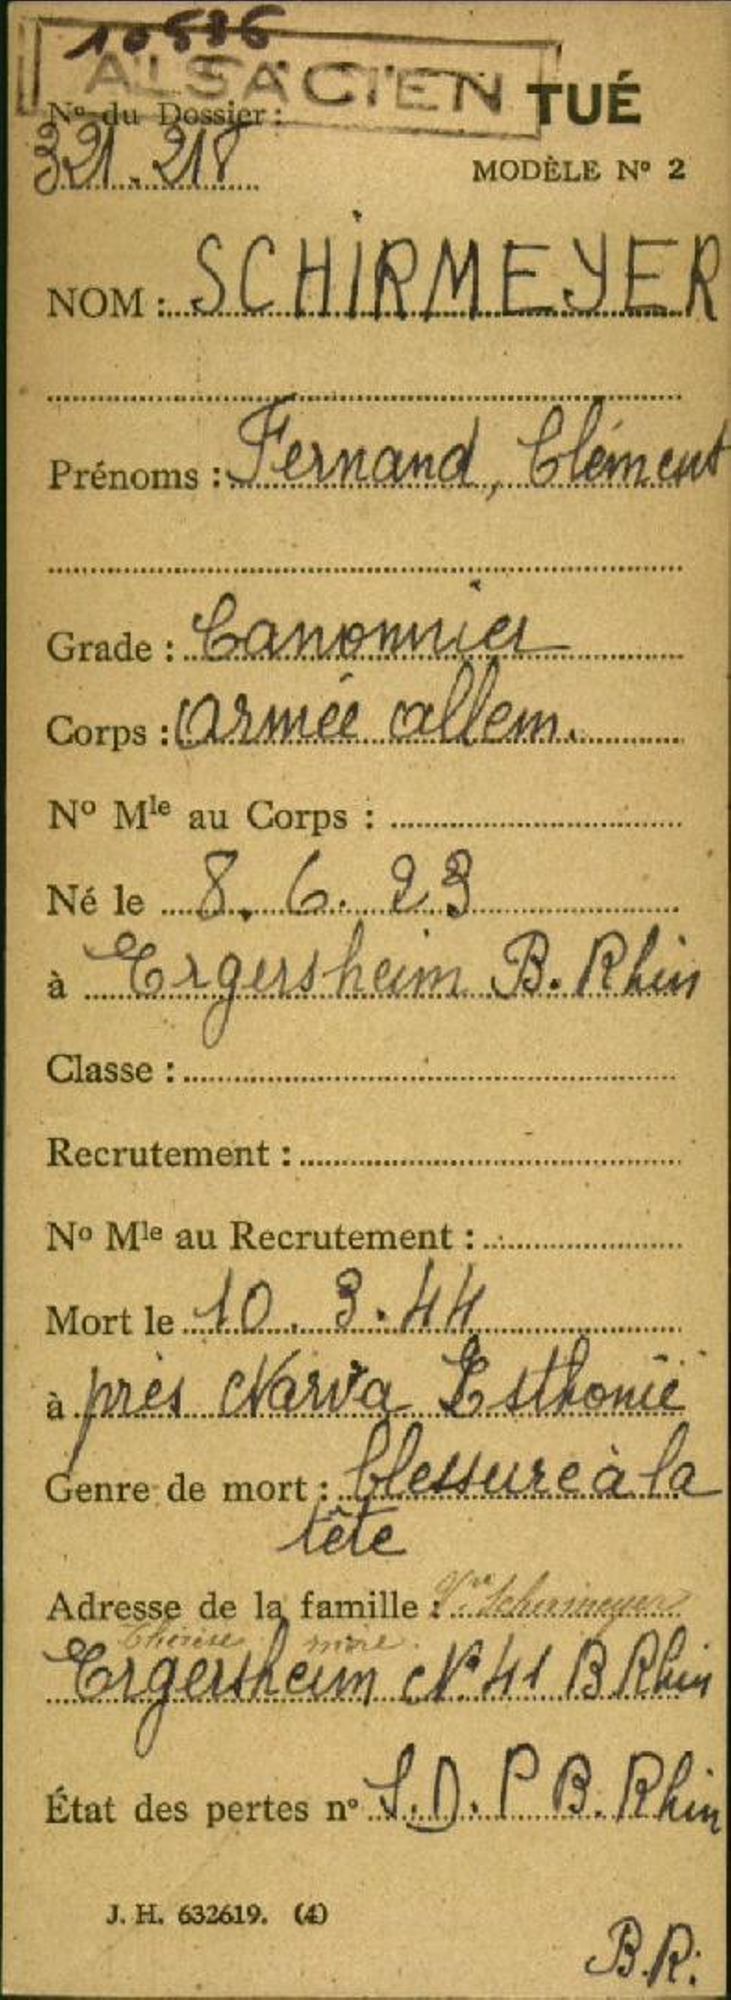 10536
ALSACIEN
TUÉ
Nº du Dossier :
321.218
MODÈLE Nº 2
NOM : SCHIRMEYER
Prénoms : Fernand, Clément
Grade : Canonnier
Corps : Armée allem.
Nº Mle au Corps :
Né le 8. 6. 23
à Ergersheim B. Rhin
Classe :
Recrutement :
Nº Mle au Recrutement :
Mort le 10. 3. 44
à près Narva Esthonie
Genre de mort : blessure à la
tête
Adresse de la famille : Vve Schirmeyer
Thérèse mère.
Ergersheim Nº 41 B Rhin
État des pertes nº S.D.P B. Rhin
J. H. 632619. (4)
B.R.